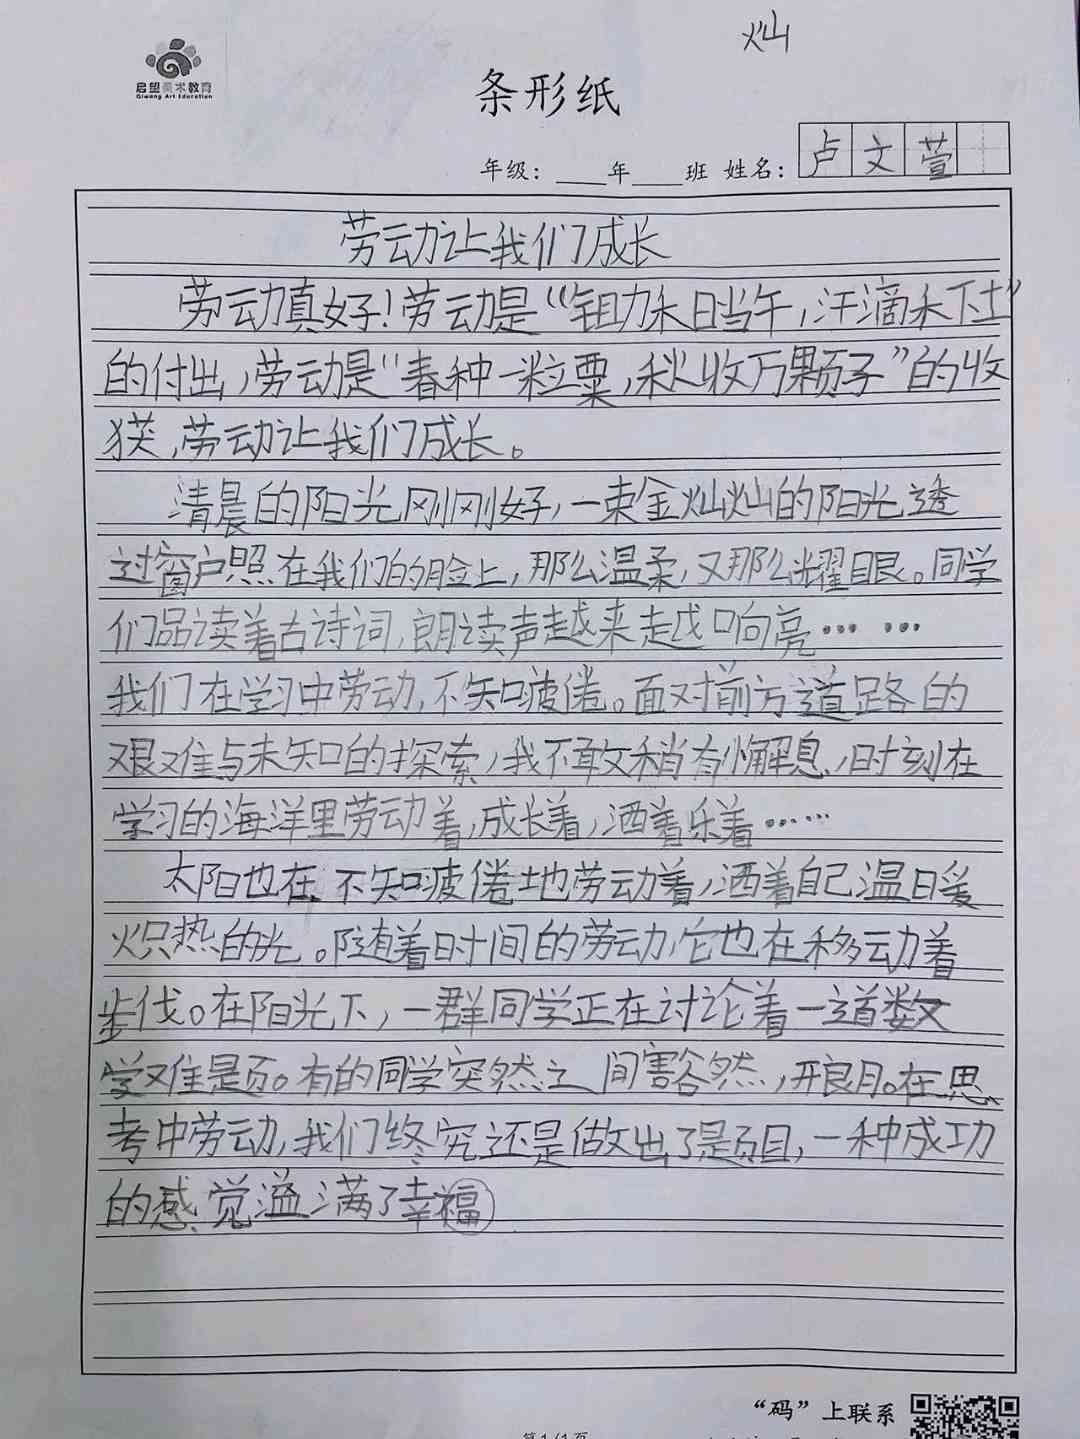 灿
启望美术教育
Qiwang Art Education
条形纸
年级：____年____班 姓名：卢文萱
劳动让我们成长
劳动真好！劳动是“锄禾日当午，汗滴禾下土”
的付出，劳动是“春种一粒粟，秋收万颗子”的收
获，劳动让我们成长。
清晨的阳光刚刚好，一束金灿灿的阳光透
过窗户照在我们的脸上，那么温柔，又那么耀眼。同学
们品读着古诗词，朗读声越来越响亮……
我们在学习中劳动，不知疲倦。面对前方道路的
艰难与未知的探索，我不敢稍有懈息，时刻在
学习的海洋里劳动着，成长着，洒着乐着……
太阳也在不知疲倦地劳动着，洒着自己温暖
炽热的光。随着时间的劳动，它也在移动着
步伐。在阳光下，一群同学正在讨论着一道数
学难题。有的同学突然之间害谷然，开良月。在思
考中劳动，我们终究还是做出了题目，一种成功
的感觉溢满了幸福
“码”上联系
第1/1页